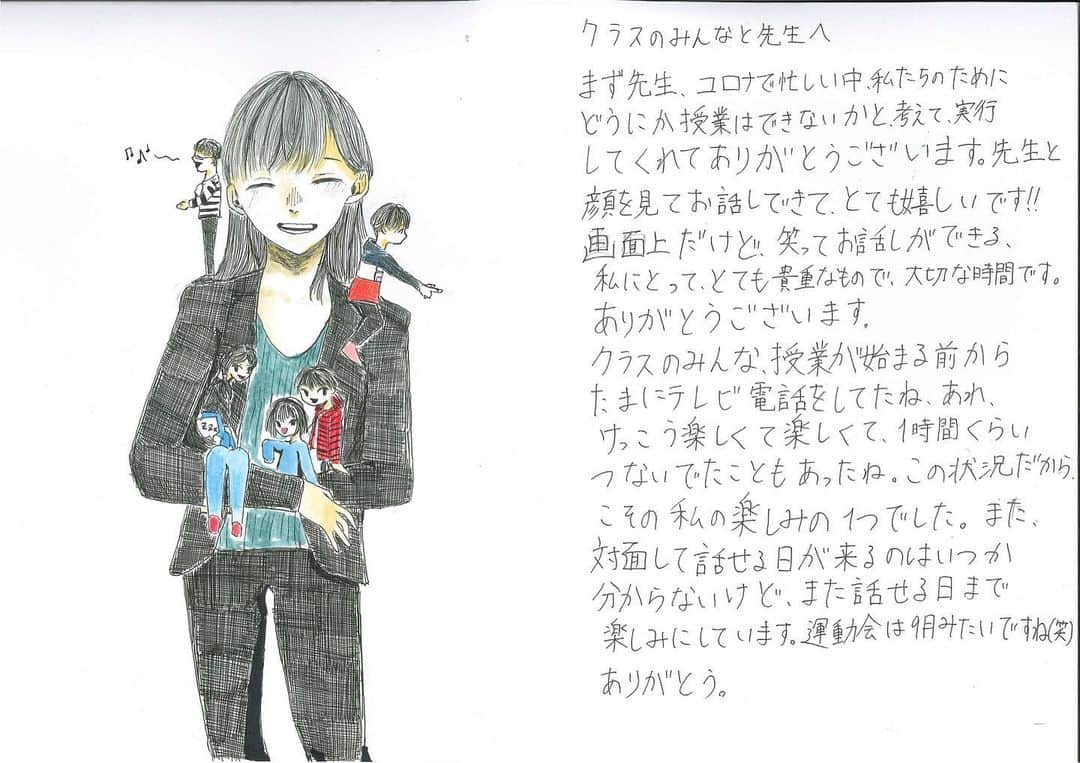 クラスのみんなと先生へ
まず先生、コロナで忙しい中、私たちのために
どうにか授業はできないかと、考えて、実行
してくれてありがとうございます。先生と
顔を見てお話しできて、とても嬉しいです!!
画面上だけど、笑ってお話しができる、
私にとって、とても貴重なもので、大切な時間です。
ありがとうございます。
クラスのみんな、授業が始まる前から
たまにテレビ電話をしてたね、あれ、
けっこう楽しくて楽しくて、1時間くらい
つないでたこともあったね。この状況だから、
こその私の楽しみの1つでした。また、
対面して話せる日が来るのはいつか
分からないけど、また話せる日まで
楽しみにしています。運動会は9月みたいですね(笑)
ありがとう。
zzz